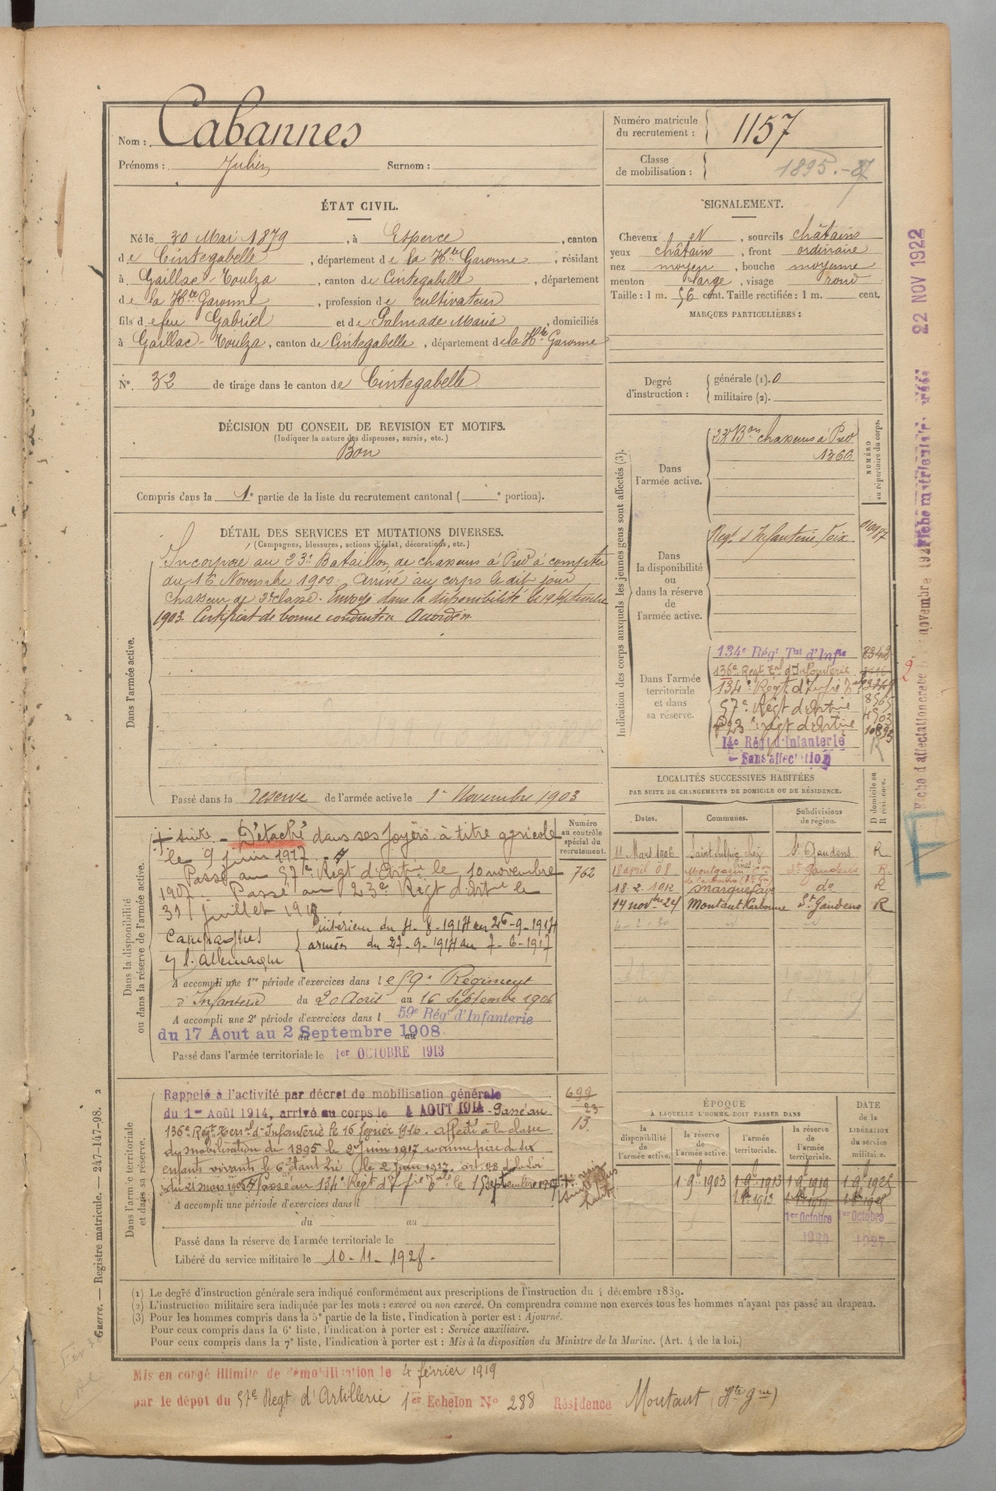 Nom : Cabannes
Prénoms : Julien Surnom :
Numéro matricule du recrutement : 1157
Classe de mobilisation : 1895.-87
ÉTAT CIVIL.
Né le 30 Mai 1879, à Esperce, canton
de Cintegabelle, département de la Hte Garonne, résidant
à Gaillac-Toulza, canton de Cintegabelle, département
de la Hte Garonne, profession de cultivateur
fils de feu Gabriel et de Palmade Marie, domiciliés
à Gaillac-Toulza, canton de Cintegabelle, département de la Hte Garonne
N° 32 de tirage dans le canton de Cintegabelle
SIGNALEMENT.
Cheveux et, sourcils châtains
yeux châtains, front ordinaire
nez moyen, bouche moyenne
menton large, visage rond
Taille : 1 m. 56 cent. Taille rectifiée : 1 m. cent.
MARQUES PARTICULIÈRES :
Degré d'instruction : générale (1). 0
militaire (2).
DÉCISION DU CONSEIL DE REVISION ET MOTIFS.
(Indiquer la nature des dispenses, sursis, etc.)
Bon
Compris dans la 1e partie de la liste du recrutement cantonal ( e portion).
DÉTAIL DES SERVICES ET MUTATIONS DIVERSES.
(Campagnes, blessures, actions d'éclat, décorations, etc.)
Dans l'armée active.
Incorporé au 23e Bataillon de chasseurs à Pied à compter
du 16 Novembre 1900. Arrivé au corps le dit jour
chasseur de 2e classe. Envoyé dans la disponibilité le 19 septembre
1903. Certificat de bonne conduite Accordé.
Passé dans la réserve de l'armée active le 1er Novembre 1903
Indication des corps auxquels les jeunes gens sont affectés (3).
NUMÉRO au répertoire du corps.
Dans l'armée active.
23e Bon chasseurs à Pied
1366
Dans la disponibilité ou dans la réserve de l'armée active.
Régt d'Infanterie Foix
Dans l'armée territoriale et dans sa réserve.
134e Régt Tal d'Infie
136e Régt Tal d'Infanterie
134e Régt d'Infie Tale
57e Régt d'Artie
23e Régt d'Artie
14e Régt d'Infanterie
Sans affectation
LOCALITÉS SUCCESSIVES HABITÉES
PAR SUITE DE CHANGEMENTS DE DOMICILE OU DE RÉSIDENCE.
Dates. Communes. Subdivisions de région. D domicile ou R résidence.
11 Mars 1906 Saint Sulpice Lezé St Gaudens R
18 avril 08 St Gaudens R
18-2-1912 Marquefave do R
14 novbre 24 Montaut Narbonne St Gaudens R
Dans la disponibilité ou dans la réserve de l'armée active.
Numéro au contrôle spécial du recrutement.
762
Suite - Détaché dans ses foyers à titre agricole
le 9 juin 1917.
Passé au 57e Régt d'Artie le 10 novembre
1917. Passé au 23e Régt d'Artie le
31 juillet 1918
Campagnes
c/ l'Allemagne
intérieur du 4-8-1914 au 26-9-1914
armées du 27-9-1914 au 7-6-1917
A accompli une 1re période d'exercices dans le 59e Régiment
d'Infanterie du 20 Août au 16 Septembre 1906
A accompli une 2e période d'exercices dans l 59e Régt d'Infanterie
du 17 Aout au 2 Septembre 1908
Passé dans l'armée territoriale le 1er OCTOBRE 1913
Dans l'armée territoriale et dans sa réserve.
Rappelé à l'activité par décret de mobilisation générale
du 1er Août 1914, arrivé au corps le 4 AOUT 1914. Passé au
136e Régt Terral d'Infanterie le 16 février 1916. Affecté à la classe
de mobilisation de 1895 le 2 juin 1917 comme père de six
enfants vivants le 6e étant né le 2 juin 1917. art. 48 de la Loi
Passé au 134e Régt d'Infie Tale le 1 Septembre 1917
A accompli une période d'exercices dans l
du au
Passé dans la réserve de l'armée territoriale le
Libéré du service militaire le 10-11-1928.
ÉPOQUE
À LAQUELLE L'HOMME DOIT PASSER DANS
la disponibilité de l'armée active. la réserve de l'armée active. l'armée territoriale. la réserve de l'armée territoriale. DATE de la LIBÉRATION du service militaire.
1 9bre 1903 1 9bre 1913 1 9bre 1919 1 9bre 1925
1er Octobre 1er Octobre
(1) Le degré d'instruction générale sera indiqué conformément aux prescriptions de l'instruction du 4 décembre 1889.
(2) L'instruction militaire sera indiquée par les mots : exercé ou non exercé. On comprendra comme non exercés tous les hommes n'ayant pas passé au drapeau.
(3) Pour les hommes compris dans la 5e partie de la liste, l'indication à porter est : Ajourné.
Pour ceux compris dans la 6e liste, l'indication à porter est : Service auxiliaire.
Pour ceux compris dans la 7e liste, l'indication à porter est : Mis à la disposition du Ministre de la Marine. (Art. 4 de la loi.)
Mis en congé illimité de démobilisation le 4 février 1919
par le dépôt du 57e Régt d'Artillerie 1er Echelon N° 288 Résidence Montaut (Hte Gne)
Guerre. — Registre matricule. — 247-147-98. 2
22 NOV 1922